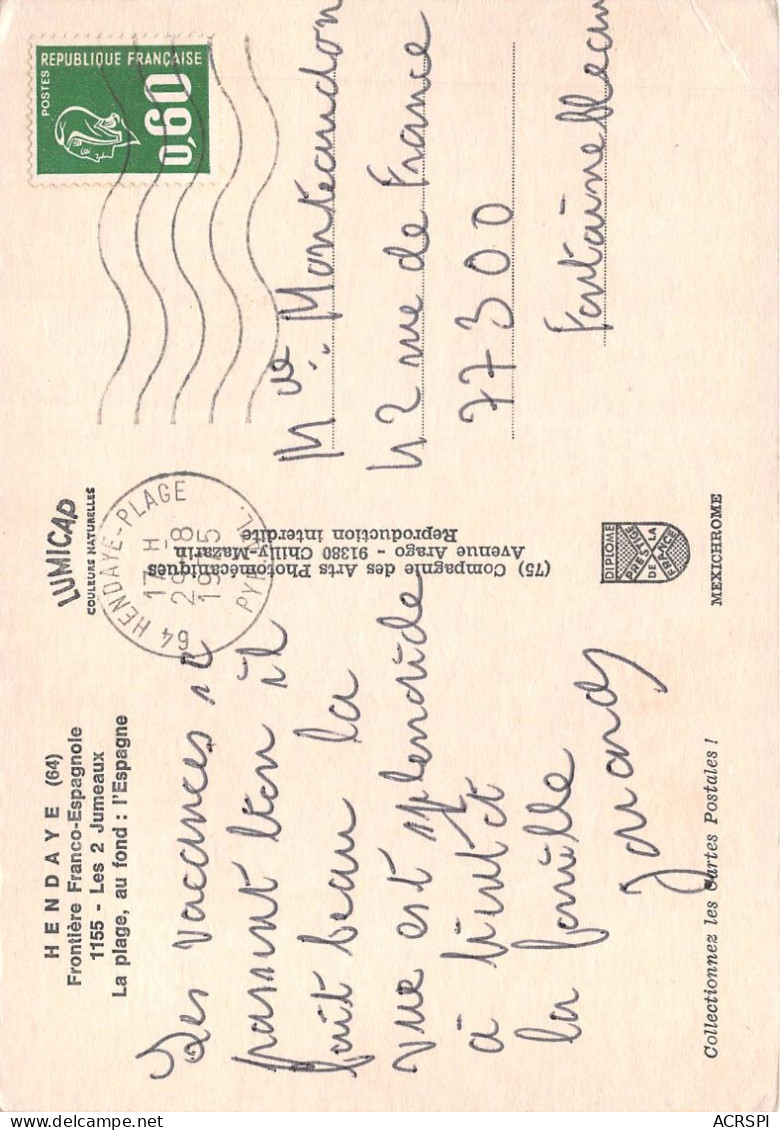 HENDAYE (64)
Frontière Franco-Espagnole
1155 - Les 2 Jumeaux
La plage, au fond : l'Espagne
LUMICAP
COULEURS NATURELLES
64 HENDAYE-PLAGE
17 H
29-8
1975
POSTES
REPUBLIQUE FRANÇAISE
0,60
Les vacances se
passent bien il
fait beau la
vue est splendide
à bientot
la famille
(75) Compagnie des Arts Photomécaniques
Avenue Arago - 91380 Chilly-Mazarin
Reproduction interdite
42 rue de France
77300
Fontainebleau
DIPLOME
PRESTIGE
DE LA
FRANCE
MEXICHROME
Collectionnez les Cartes Postales !
ACRSPI